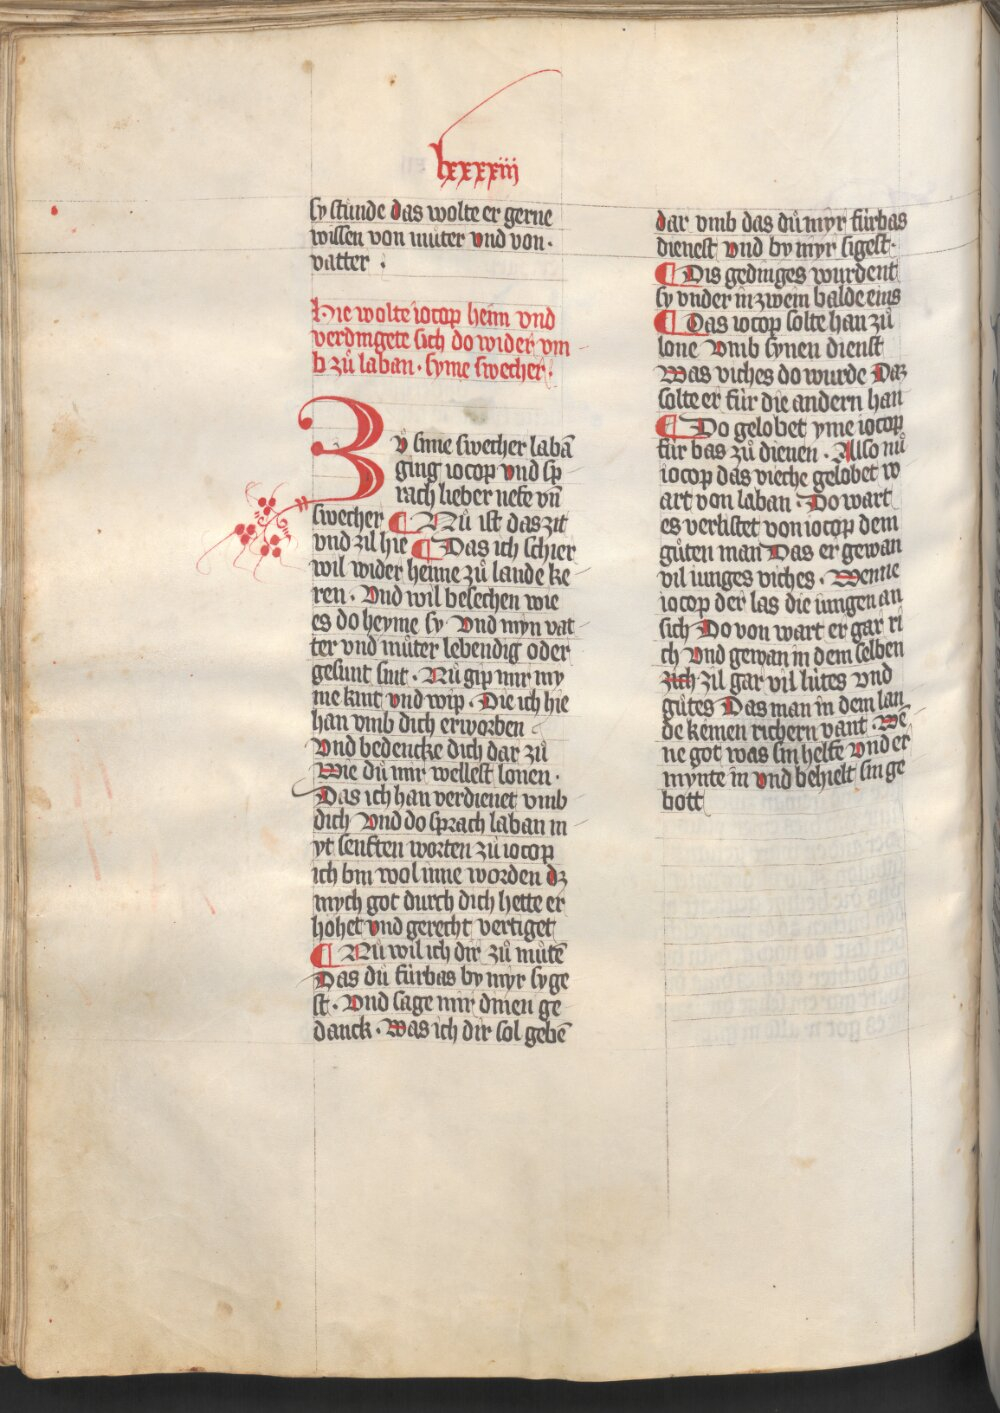 lxxxxiii
sy stunde das wolte er gerne
wissen von můter vnd von·
vatter :
Hie wolte iocop heim vnd
verdingete sich do wider vm
b zů laban · syme swecher·
Zů sime swecher labā
ging iocop vnd sp
rach lieber nefe vn̄
swecher ¶ Nů ist das zit
vnd zil hie ¶ Das ich schier
wil wider heime zů lande ke
ren · Vnd wil besechen wie
es do heyme sy Vnd myn vat
ter vnd můter lebendig oder
gesunt sint · Nů gip mir my
me kint vnd wip · Die ich hie
han vmb dich erworben
Vnd bedencke dich dar zů
Wie dů mir wellest lonen·
Das ich han verdienet vmb
dich Vnd do sprach laban m
yt senften worten zů iocop
ich bin wol inne worden dz
mych got durch dich hette er
höhet vnd gerecht vertiget
¶ Nů wil ich dir zů můtē
Das dů fürbas by myr syge
st · Vnd sage mir dinen ge
danck · Was ich dir sol gebē
dar vmb das dů myr fürbas
dienest vnd by myr sigest·
¶ Dis gedinges wurdent
sy vnder in zwein balde eins
¶ Das iocop solte han zů
lone Vmb synen dienst
Was viches do wurde Daz
solte er für die andern han
¶ Do gelobet yme iocop
für bas zů dienen · Also nů
iocop das vieche gelobet w
art von laban · Do wart
es verlistet von iocop dem
gůten man Das er gewan
vil iunges viches · Wenne
iocop der las die iungen an
sich Do von wart er gar ri
ch Vnd gewan in dem selben
zich zil gar vil lütes vnd
gůtes Das man in dem lan
de keinen richern vant · We
ne got was sin helfe Vnd er
mynte in vnd behielt sin ge
bott